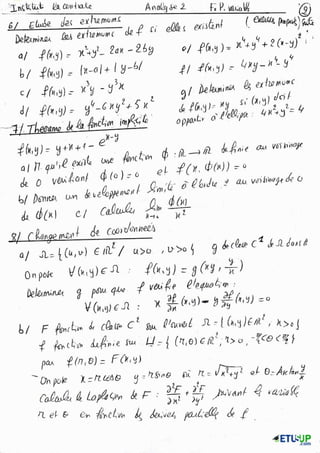 Institut la centrale Analyse 2 F.P. variables 9
6/ Etude des extremums
Déterminer les extremums de f si elles existent
a/ f(x,y) = x²+y² - 2ax - 2by
b/ f(x,y) = |x-a| + |y-b|
c/ f(x,y) = x³y - y³x
d/ f(x,y) = y⁴ - 6xy² + 5x²
e/ f(x,y) = x⁴+y⁴ + 2(x-y)²
f/ f(x,y) = 4xy - x⁴ - y⁴
g/ Déterminer les extremums
de f(x,y) = xy si (x,y) doit
appart. à l'ellipse : 4x²+y² = 4
7/ Theorème de la fonction implicite
f(x,y) = y+x+1 - e^{x-y}
a/ M. qu'il existe une fonction ϕ : ℝ → ℝ définie au voisinage
de 0 vérifiant ϕ(0) = 0 et f(x, ϕ(x)) = 0
b/ Donner un développement limité à l'ordre 2 au voisinage de 0
de ϕ(x) c/ Calculer lim x→0 ϕ(x)/x²
8/ Changement de coordonnées
a/ Ω = {(u,v) ∈ ℝ² / u>0, v>0} g de classe C¹ de Ω dans ℝ
On pose ∀(x,y) ∈ Ω : f(x,y) = g(xy, y/x)
Déterminer g pour que f vérifie l'équation :
∀(x,y) ∈ Ω : x ∂f/∂x (x,y) - y ∂f/∂y (x,y) = 0
b/ F fonction de classe C² sur l'ouvert Ω = {(x,y) ∈ ℝ², x>0}
f fonction définie sur H = {(r,θ) ∈ ℝ², r>0, -π/2<θ<π/2}
par f(r,θ) = F(x,y)
On pose x = r cosθ y = r sinθ où r = √(x²+y²) et θ = Arctan y/x
Calculer le Laplacien de F : ∂²F/∂x² + ∂²F/∂y² suivant les variables
r et θ en fonction des dérivées partielles de f.
ETUUP